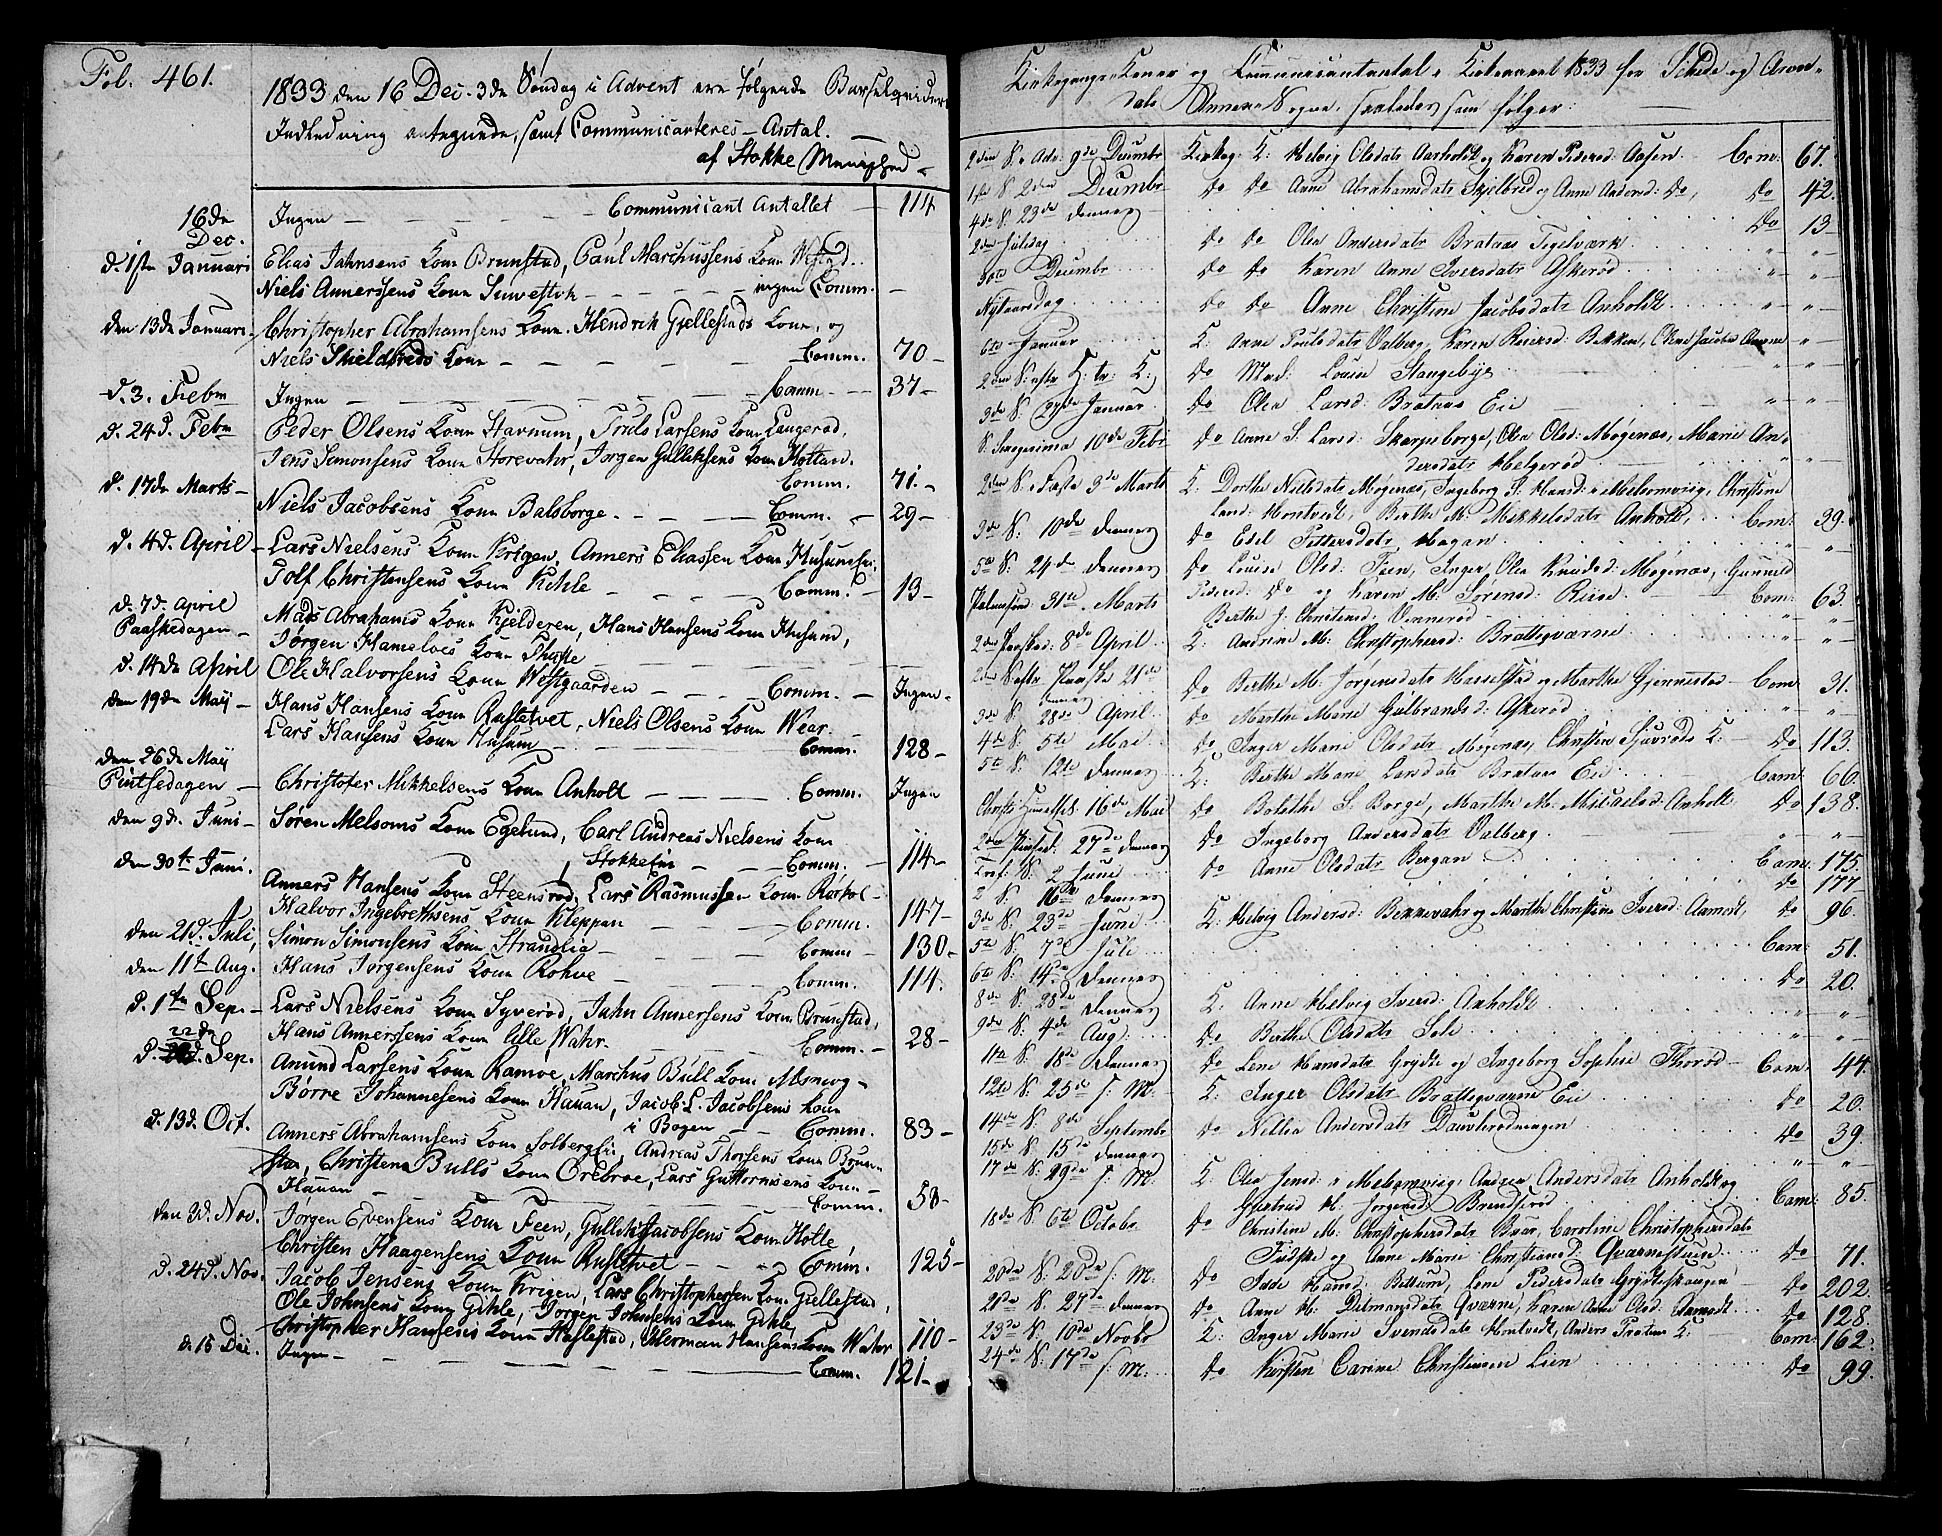 Fol. 461.
1833 den 16 Dec. 3de Søndag i Advent ere følgende Barselqvinders
Indledning antegnede, samt Communicanteres Antal.
af Stokke Menighed
16de Dec. Ingen — Communicant Antallet 114
d. 1ste Januari Elias Jahnsens Kone Brunstad, Paul Marchussens Kone
Niels Annerssens Kone — ingen Comm. —
den 13de Januari Christopher Abrahamsens Kone. Hendrik Gjellestads Kone, og
Niels Skieldbreds Kone — Comm. 70 —
d. 3. Febr Ingen — Comm. — 37 —
d. 24d. Febr Peder Olsens Kone Havnum, Truls Larsens Kone Langerød,
Jens Simonsens Kone Storevahr, Jørgen Gulliksens Kone Holtan.
Comm. 71. —
d. 17de Marts — Niels Jacobsens Kone Balsborge. — Comm. — 29 —
d. 4d. April — Lars Nielsens Kone Krigen, Anners Eliassen Kone
Tolf Christensens Kone — Comm. — 13 —
d. 7d. April Paaskedagen — Mads Abrahams Kone Kjelderen, Hans Hansens Kone Husum,
Jørgen Kone
d. 14de April Ole Halvorsens Kone Westgaarden — Comm. — Ingen —
den 19de Maij — Hans Hansens Kone Rastetvet, Niels Olsens Kone Wear
Lars Hansens Kone Husum — Comm. 128 —
den 26de Maij
Pintsedagen — Christofer Mikkelsens Kone Anholt — Comm. Ingen
den 9d. Juni — Søren Melsoms Kone Egelund, Carl Andreas Nielsens Kone
Comm. — 114 —
den 30te Juni. Anners Hansens Kone Steensrød, Lars Rasmussen Kone
Halvor Ingebrethsens Kone Kleppan — Comm. 147 —
den 21d. Juli, Simon Simonsens Kone Strandlia — Comm 130 —
den 11te Aug. Hans Jørgensens Kone Rohve — Comm. 114.
d. 1ste Sep. — Lars Nielsens Kone Syverød, Jahn Annersens Kone Brunstad,
Hans Annersens Kone Wahr. — Comm. — 28 —
d. 22de Sep. Amund Larsens Kone Ramoe, Marchus Bull Kone
Børre Johannesens Kone Hauan, Jacob L. Jacobsens Kone
i Bogen — Comm. 83 —
d. 13d. Oct. Anners Abrahamsens Kone Solberglie, Andreas Thorsens Kone
Christen Bulls Kone Örebroe, Lars Guttormsens Kone —
Hauan — Comm. 58 —
den 3d. Nov. Jørgen Evensens Kone Feen, Gullik Jacobsens Kone Holte
Christen Haagensens Kone Rastetvet — Comm. 125 —
d. 24d. Nov. Jacob Jensens Kone Krigen, Lars Christophersen Kone Gjellestad,
Ole Johnsens Kone Gihle, Jørgen Johnsens Kone Gihle,
Christopher Hansens Kone Haslestad, Herman Hansens Kone Wahr 110 —
d. 15 Dec. Ingen — Comm. 121 —
Kirkegangs-Koner og Communicantantal i Kirkeaaret 1833 for Schede og Aron-
dals Annex-Sogne, saaledes som følger:
2den S. i Adv. 9de Decembr Kirkeg. K: Helvig Olsdatr Aarholdt og Karen Pedersd: Aasen. Com: 67.
do do Anne Abrahamsdatr Skjelbred og Anne Andersd: do, do 42.
4de S. 23de dennes do 13
2den Juledag do do Olea Andersdatr Brataas Tegelværk
30te Decembr do do Karen Anne Iversdatr Askerød
Nytaarsdag do do Anne Christine Jacobsdatr Anholdt.
6te Januar K: Anne Poulsdatr Valberg, Karen Reiersd: Bekken,
do Mad: Louise Stangebye
3de S. 27de Januar do Olea Larsd: Brataas Eie
10de Febr do Anne S. Larsd: Skarpeborge, Olea Olsd: Møgenæs, Marie An-
dersdatr Helgerød
2den S. i Faste 3de Marts K: Dorthe Nielsdatr Møgenæs, Ingeborg A: Hansd: i Melsomviig, Christine
Hontvedt, Berthe M. Mikkelsdatr Anholt, Com: 39.
3de S: 10de dennes do Edel Pettersdatr Hogan
5te S: 24de dennes do Louise Olsd: Feen, Inger Olea Knudsd: Møgenæs, Gunnild
31te Marts Pedersd: do og Karen M: Sørensd: Com: 63.
Berthe J. Christensd: Vennerød
2den 8de April K: Andrine M: Christophersd: Bratteqværne
2den S. efter Paaske 21de dennes do Berthe M. Jørgensdatr Hasselstad og Marthe Gjennestad — Com: 31.
3de S: 28de April do Marthe Marie Gulbrandsd: Askerød
4de S. 5te Mai do Inger Marie Olsdatr Møgenæs, Christen K: do 113.
5te S: 12te dennes K: Berthe Marie Larsdatr Brataas Eie Com: 66.
Christi Himelf. 16de Mai do Bolethe S. Borge, Marthe M. Anholt do 138.
27de dennes do Ingeborg Andersdatr Valberg
2 Juni do Anne Olsdatr Bergan Com: 175.
2 S. 16de dennes do 177
3de S: 23de Juni K: Helvig Andersd: Bekkevahr og Marthe Christine Iversd: Aamodt, do 96.
5te S: 7de Juli Com: 51.
6te S: 14de dennes do 20.
8de S: 28de dennes K: Anne Helvig Iversd: Anholdt
9de S: 4de Aug: do Berthe Olsdatr Sole
11te S: 18de dennes do Lene Hansdatr Grydte og Ingeborg Sophie Thorød — Com: 44.
12te S: 25de s: M: K: Inger Olsdatr Bratteqværne Eie do 20.
14de S: 8de Septembr do Nillia Andersdatr do 39.
15de S: 15de dennes
17de S: 29de s: M: K: Olea Jensd: i Melsomviig, Andrea Andersdatr Anholdt og
Gjertrud H. Jørgensd: Com: 85.
18de S: 6te Octobr do Christine M: Christophersdatr Bar, Caroline Christophersdatr
og Anne Marie Christiansd: Qvernestuen do 71.
20de S: 20de s: M: do Hansd: Bettum, Lene Pedersdatr — do 202.
21de S: 27de dennes do Anne H: Ditmansdatr Qværne, Karen Anne Olsd: Aamodt do 128.
23de S: 10de Novbr K: Inger Marie Svendsdatr Hontvedt, Anders Brataas K: Com: 162.
24de S: 17de s: M: do Kirsten Carine Christensen Lien do 99.